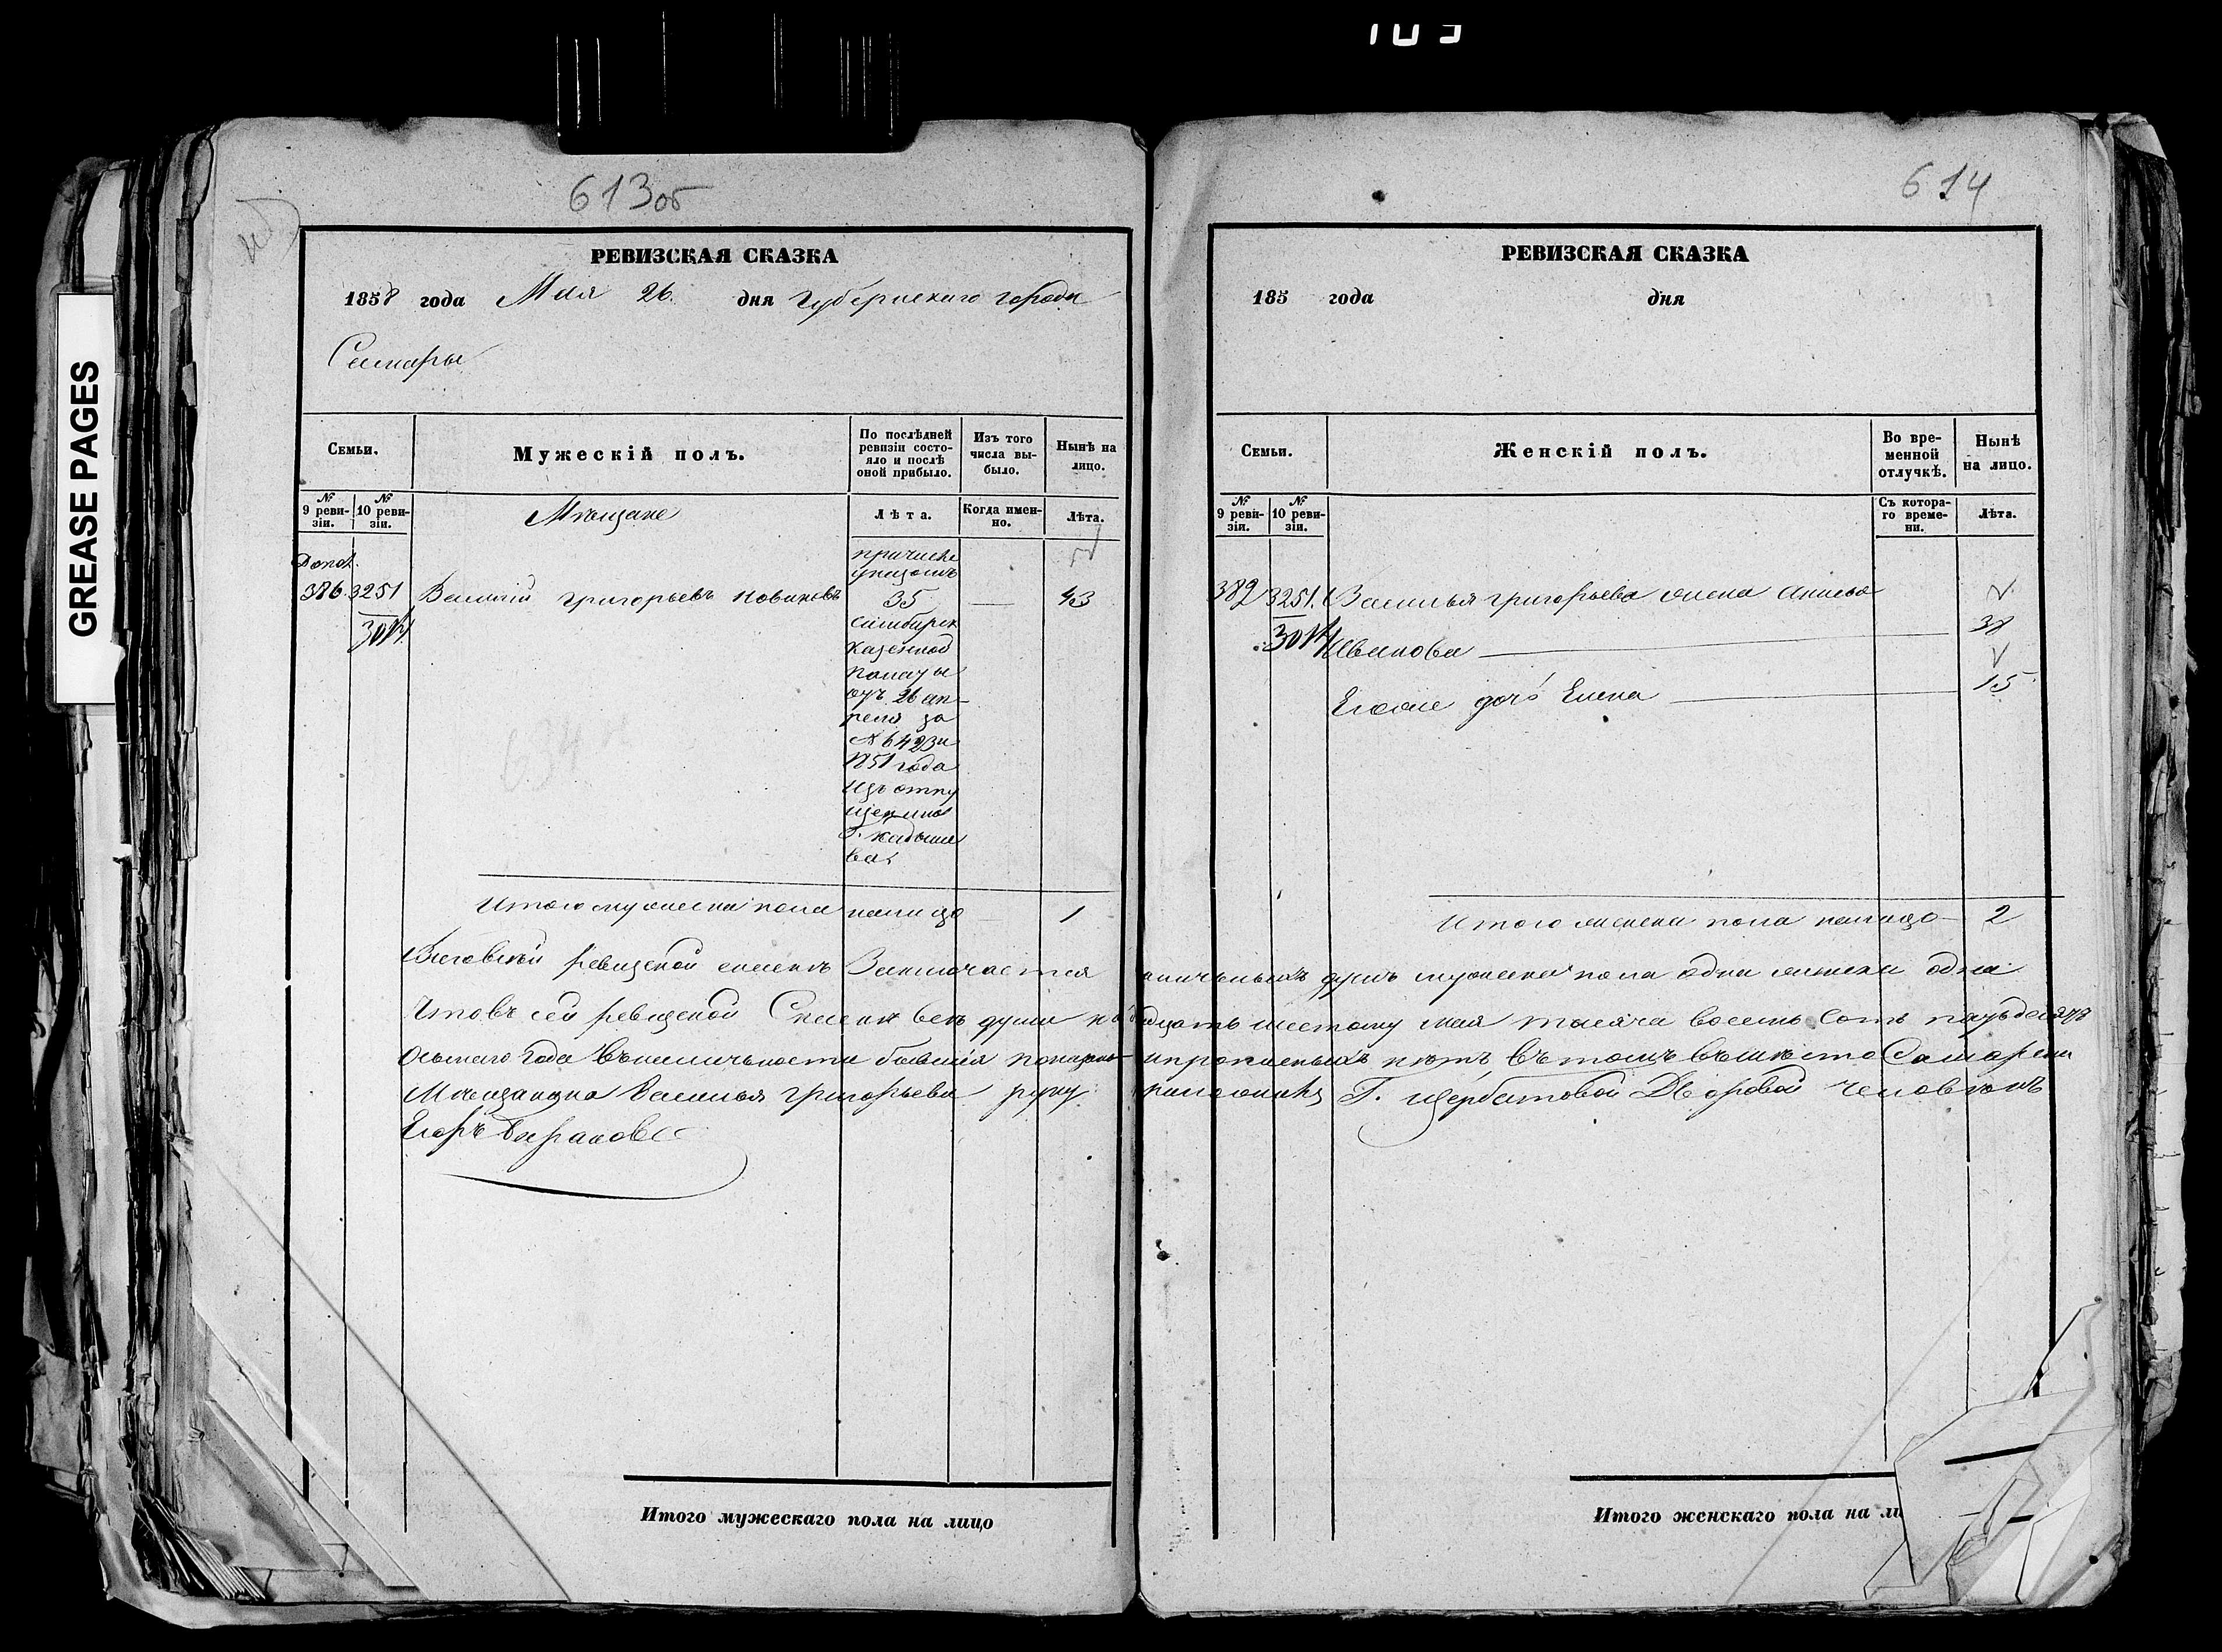 105
GREASE PAGES
613об
РЕВИЗСКАЯ СКАЗКА
1858 года Мая 26 дня Губернскаго города
Самары
Семьи.
Мужескій полъ.
По послѣдней ревизіи состо-
яло и послѣ
оной прибыло.
Изъ того
числа вы-
было.
Нынѣ на
лицо.
№
9 реви-
зіи.
№
10 реви-
зіи.
Мѣщане
Лѣта.
Когда имен-
но.
Лѣта.
Допол.
386 3251 Василій Григорьевъ Новиковъ
причисле
указомъ
35 — 43
Симбирск
Казенной
палаты
отъ 26 ап-
реля за
№ 6423 и
1851 года
изъ отпу
щенныхъ
Г. Кадыше
ва
Итого мужеска пола налицо — 1
614
РЕВИЗСКАЯ СКАЗКА
185 года дня
Семьи.
Женскій полъ.
Во вре-
менной
отлучкѣ.
Нынѣ
на лицо.
№
9 реви-
зіи.
№
10 реви-
зіи.
Съ котора-
го време-
ни.
Лѣта.
3251. Василья Григорьева жена Анисья
Иванова — 38
Ихже дочь Елена — 15
Итого женска пола налицо — 2
ревизской сказкѣ Заключается наличныхъ душъ мужеска пола одна женска одна
Что въ сей ревизской Сказкѣ всѣ души къ двадцать шестому мая тысяча восемь Сотъ пятьдесятъ
Осьмаго года въ наличности бывшія показаны и прописныхъ нѣтъ въ томъ вместо Самарскаго
Мѣщанина Василья Григорьева руку приложилъ Г. Щербатовой Дворовой человѣкъ
Егоръ
Итого мужескаго пола на лицо
Итого женскаго пола на ли